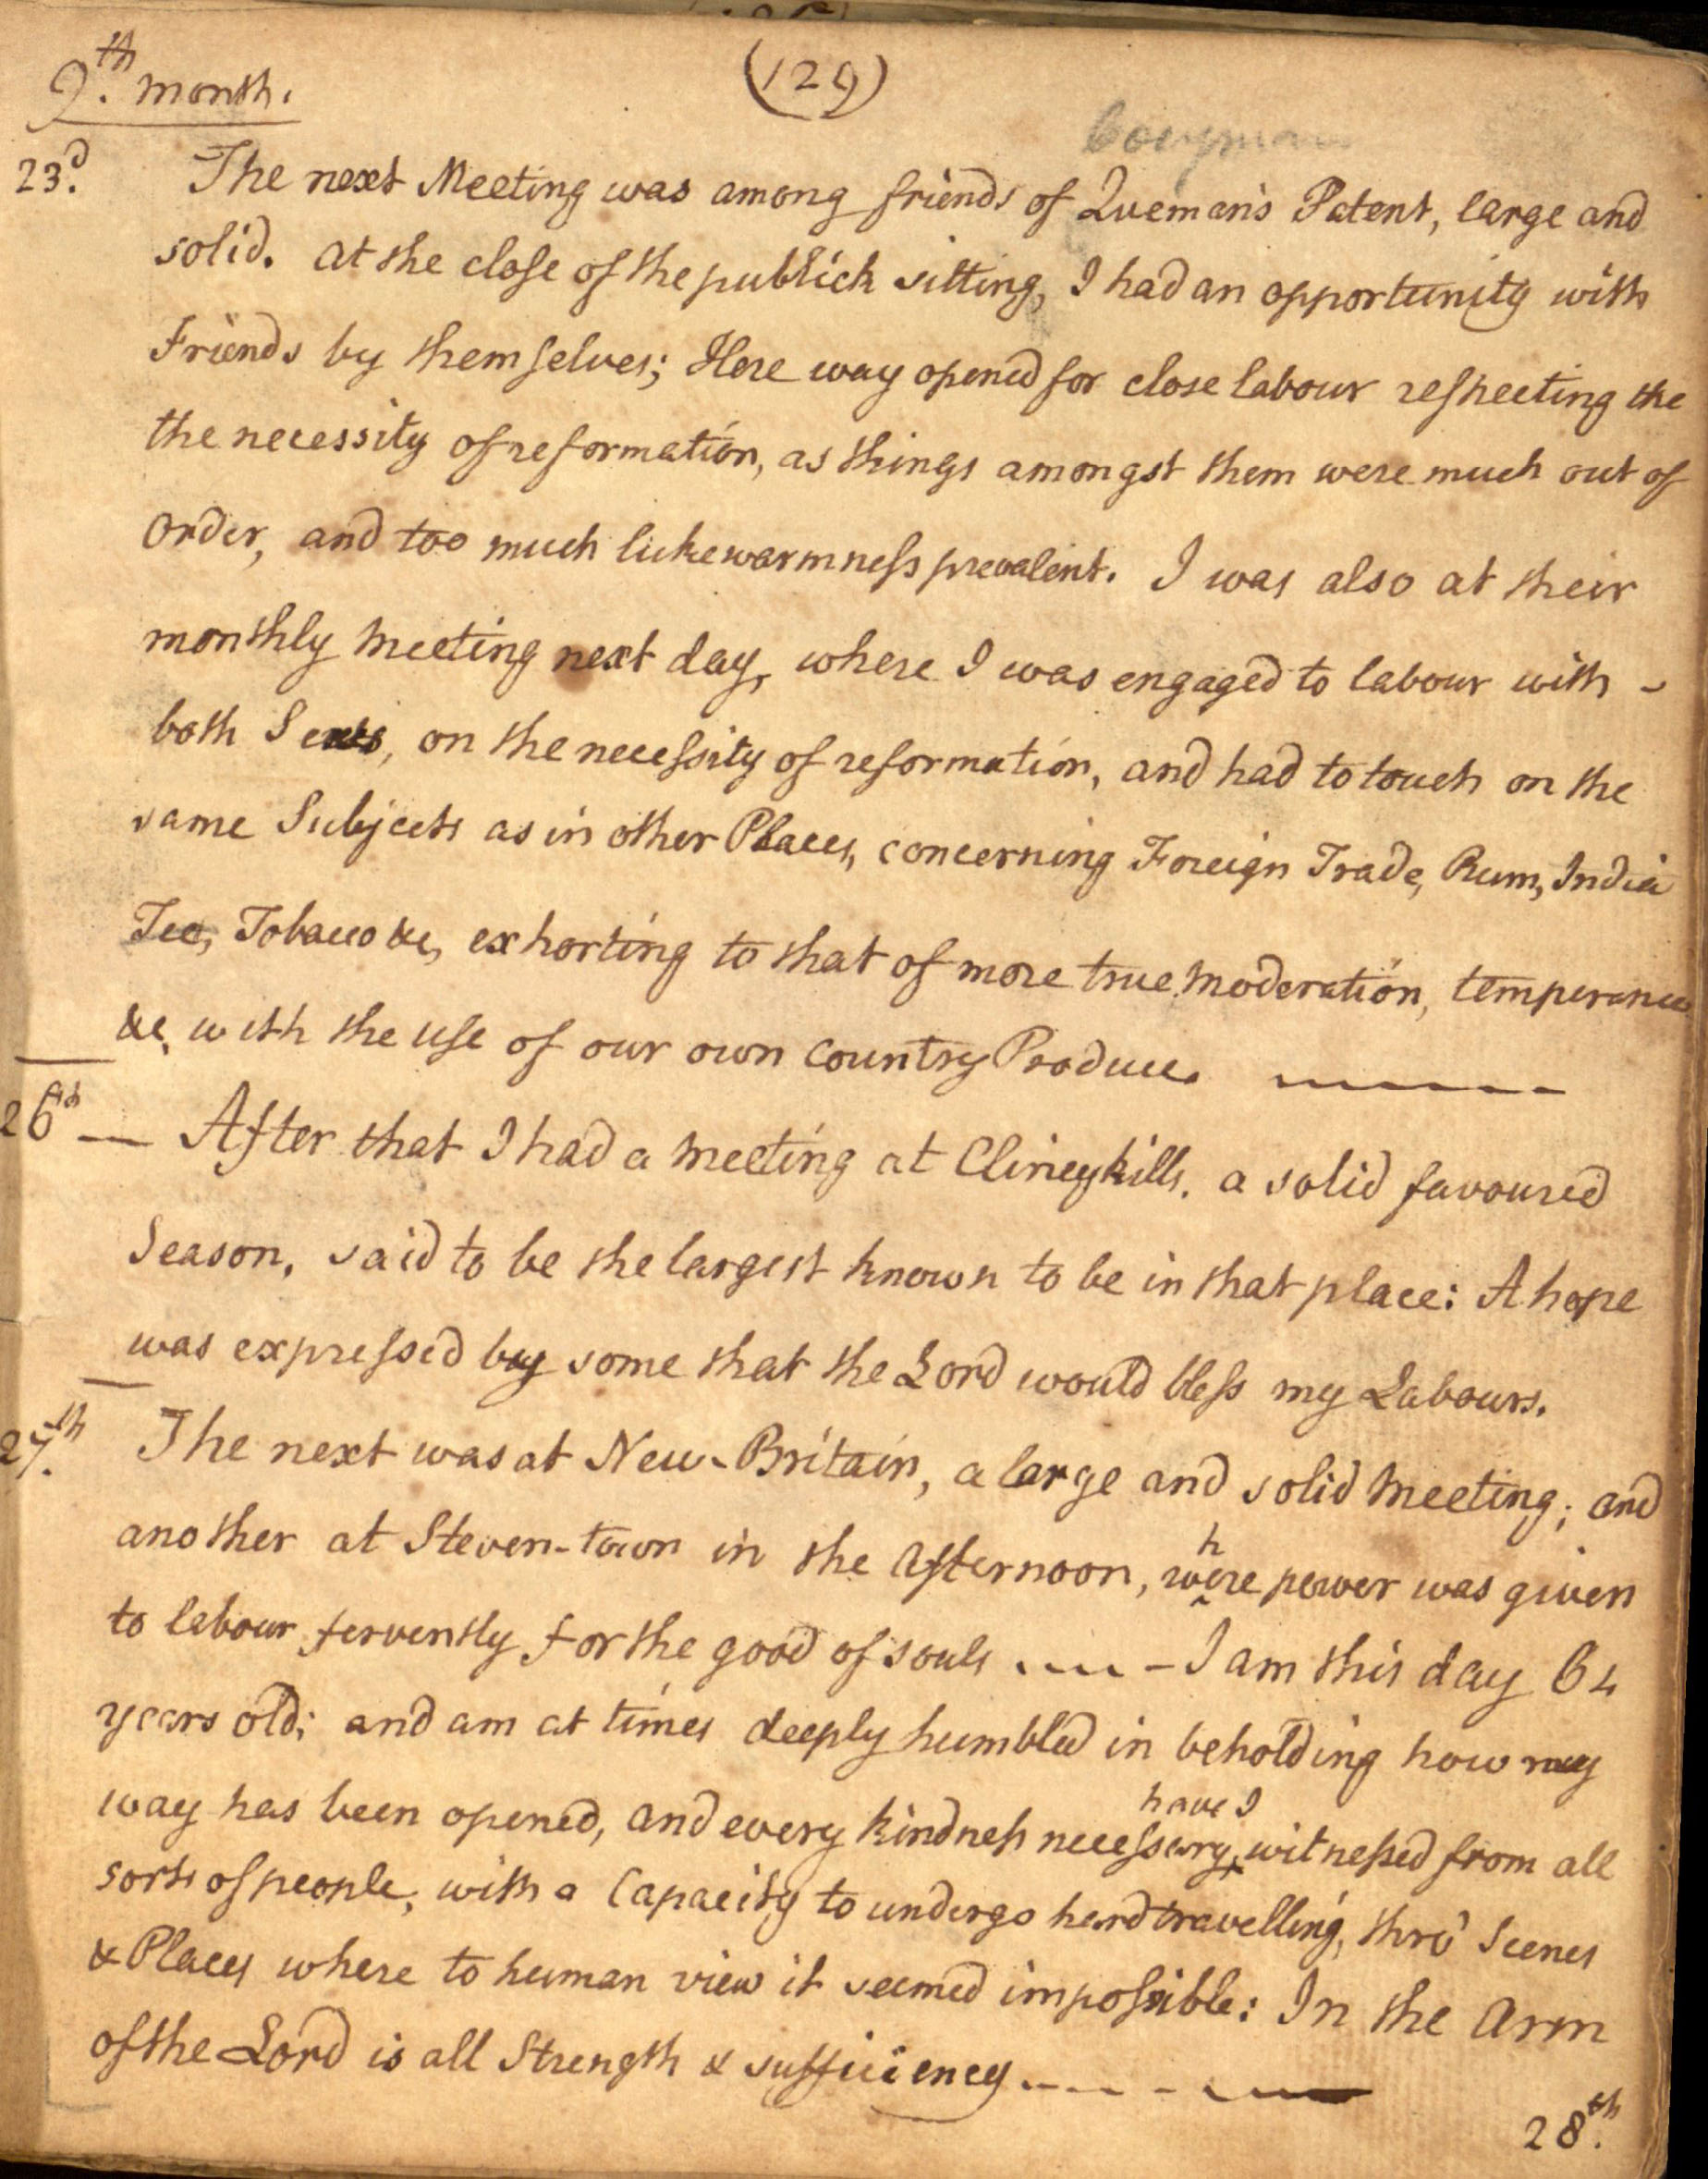 9.th month.
(129)
Coeyman
23d. The next Meeting was among friends of Queman's Patent, large and
solid. at the close of the publick sitting, I had an opportunity with
Friends by themselves; Here way opened for close labour respecting the
the necessity of reformation, as things amongst them were much out of
order, and too much lukewarmness prevalent. I was also at their
monthly meeting next day, where I was engaged to labour with -
both Sexes, on the necessity of reformation, and had to touch on the
same Subjects as in other Places, concerning Foreign Trade, Rum, India
Tea, Tobacco &c, exhorting to that of more true moderation, temperance
&c, with the use of our own country Produce.
26th — After that I had a meeting at Clineykills. a solid favoured
Season, said to be the largest known to be in that place: A hope
was expressed by some that the Lord would bless my Labours.
27.th The next was at New-Britain, a large and solid meeting; and
another at Steven-town in the afternoon, where power was given
to labour fervently for the good of souls .--- - I am this day 64
years old; and am at times deeply humbled in beholding how my
way has been opened, and every kindness necessary, have I witnessed from all
sorts of people, with a Capacity to undergo hard travelling, thro' Scenes
& Places where to human view it seemed impossible: In the Arm
of the Lord is all Strength & sufficiency.
28.th